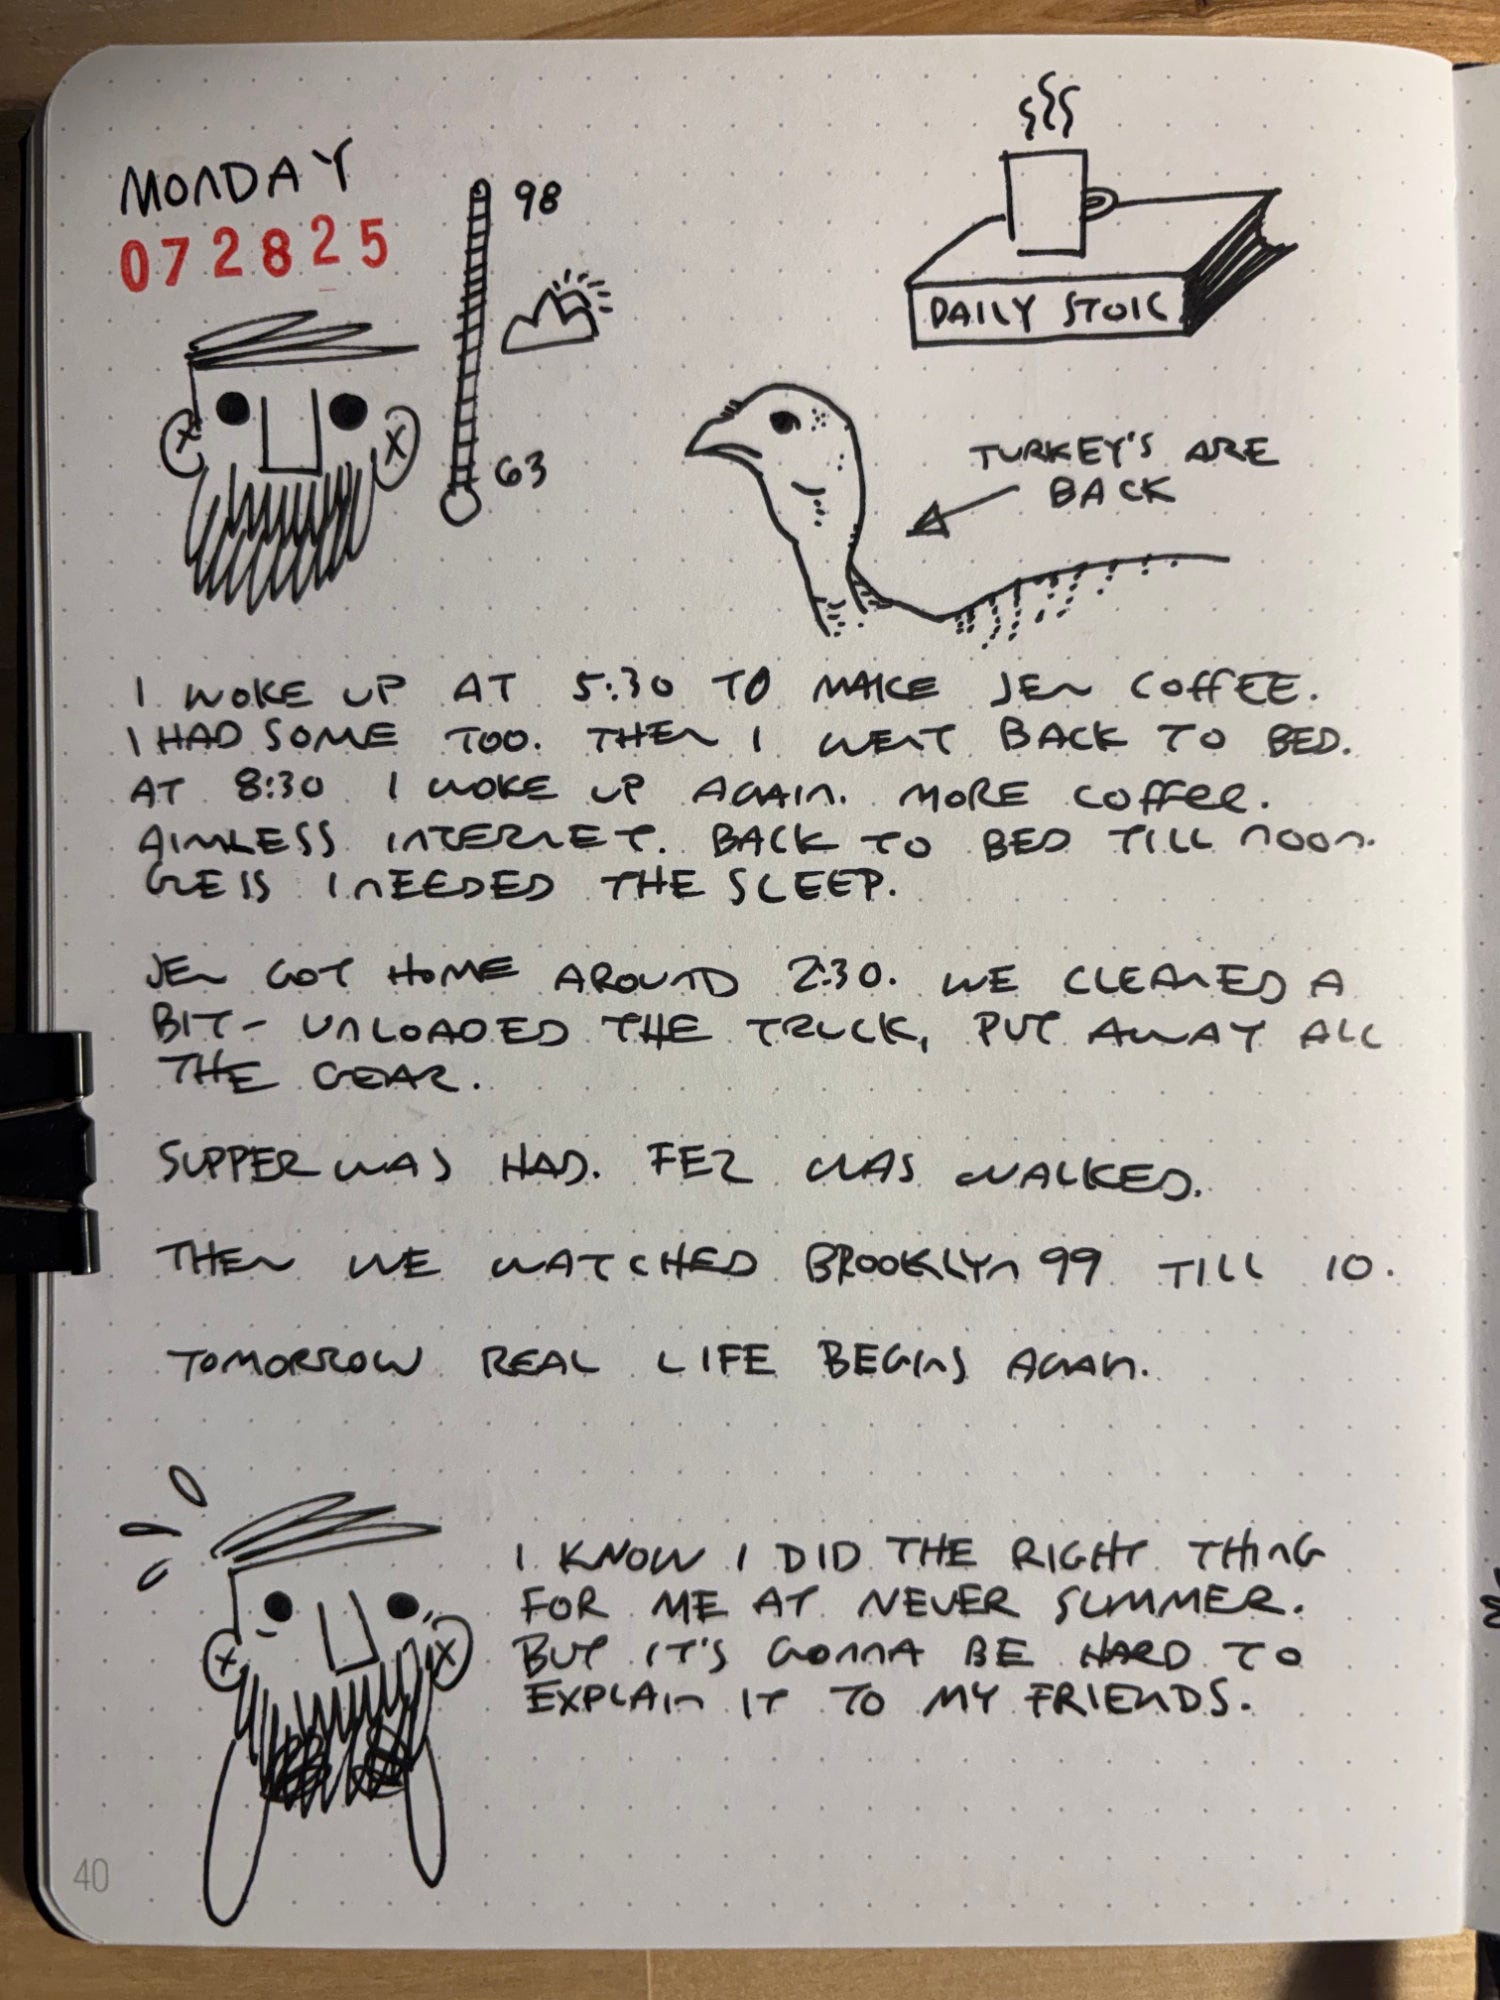 MONDAY
072825
98
63
DAILY STOIC
TURKEY'S ARE
BACK
I WOKE UP AT 5:30 TO MAKE JEN COFFEE.
I HAD SOME TOO. THEN I WENT BACK TO BED.
AT 8:30 I WOKE UP AGAIN. MORE COFFEE.
AIMLESS INTERNET. BACK TO BED TILL NOON.
GUESS I NEEDED THE SLEEP.
JEN GOT HOME AROUND 2:30. WE CLEANED A
BIT- UNLOADED THE TRUCK, PUT AWAY ALL
THE GEAR.
SUPPER WAS HAD. FEZ WAS WALKED.
THEN WE WATCHED BROOKLYN 99 TILL 10.
TOMORROW REAL LIFE BEGINS AGAIN.
I KNOW I DID THE RIGHT THING
FOR ME AT NEVER SUMMER.
BUT IT'S GONNA BE HARD TO
EXPLAIN IT TO MY FRIENDS.
40